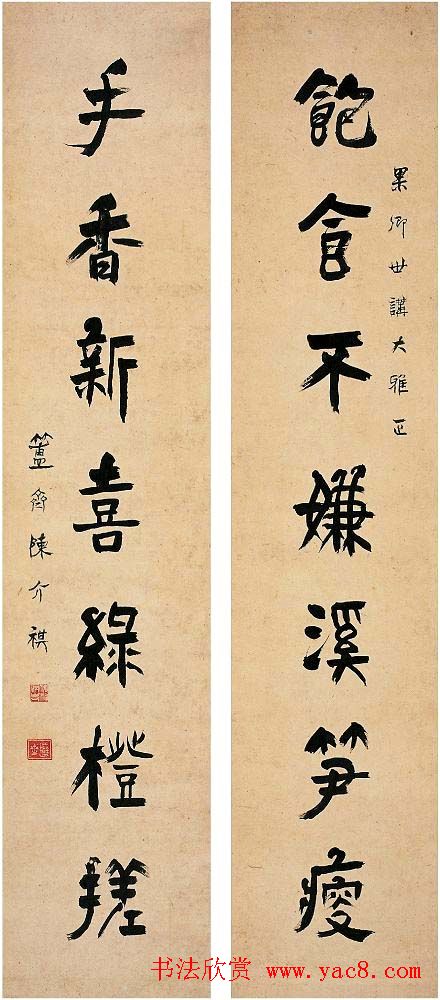 果卿世講大雅正
飽食不嫌溪笋瘦
手香新喜綠橙搓
簠齋陳介祺
书法欣赏 www.yac8.com